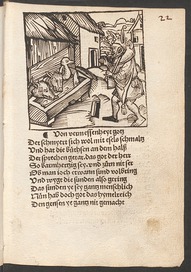 22
Von vermessenheyt gotz
Der schmyert sich wol mit esels schmaltz
Und hat die büchsen an dem halß
Der sprechen getar, das got der herr
So barmhertzig sey, und zürn nit ser
Ob man joch ettwann sünd volbring
Und wygt die sünden also gering
Das sünden ye sey gantz menschlich
Nun hab doch got das hymelrich
Den gensen ye gantz nit gemacht